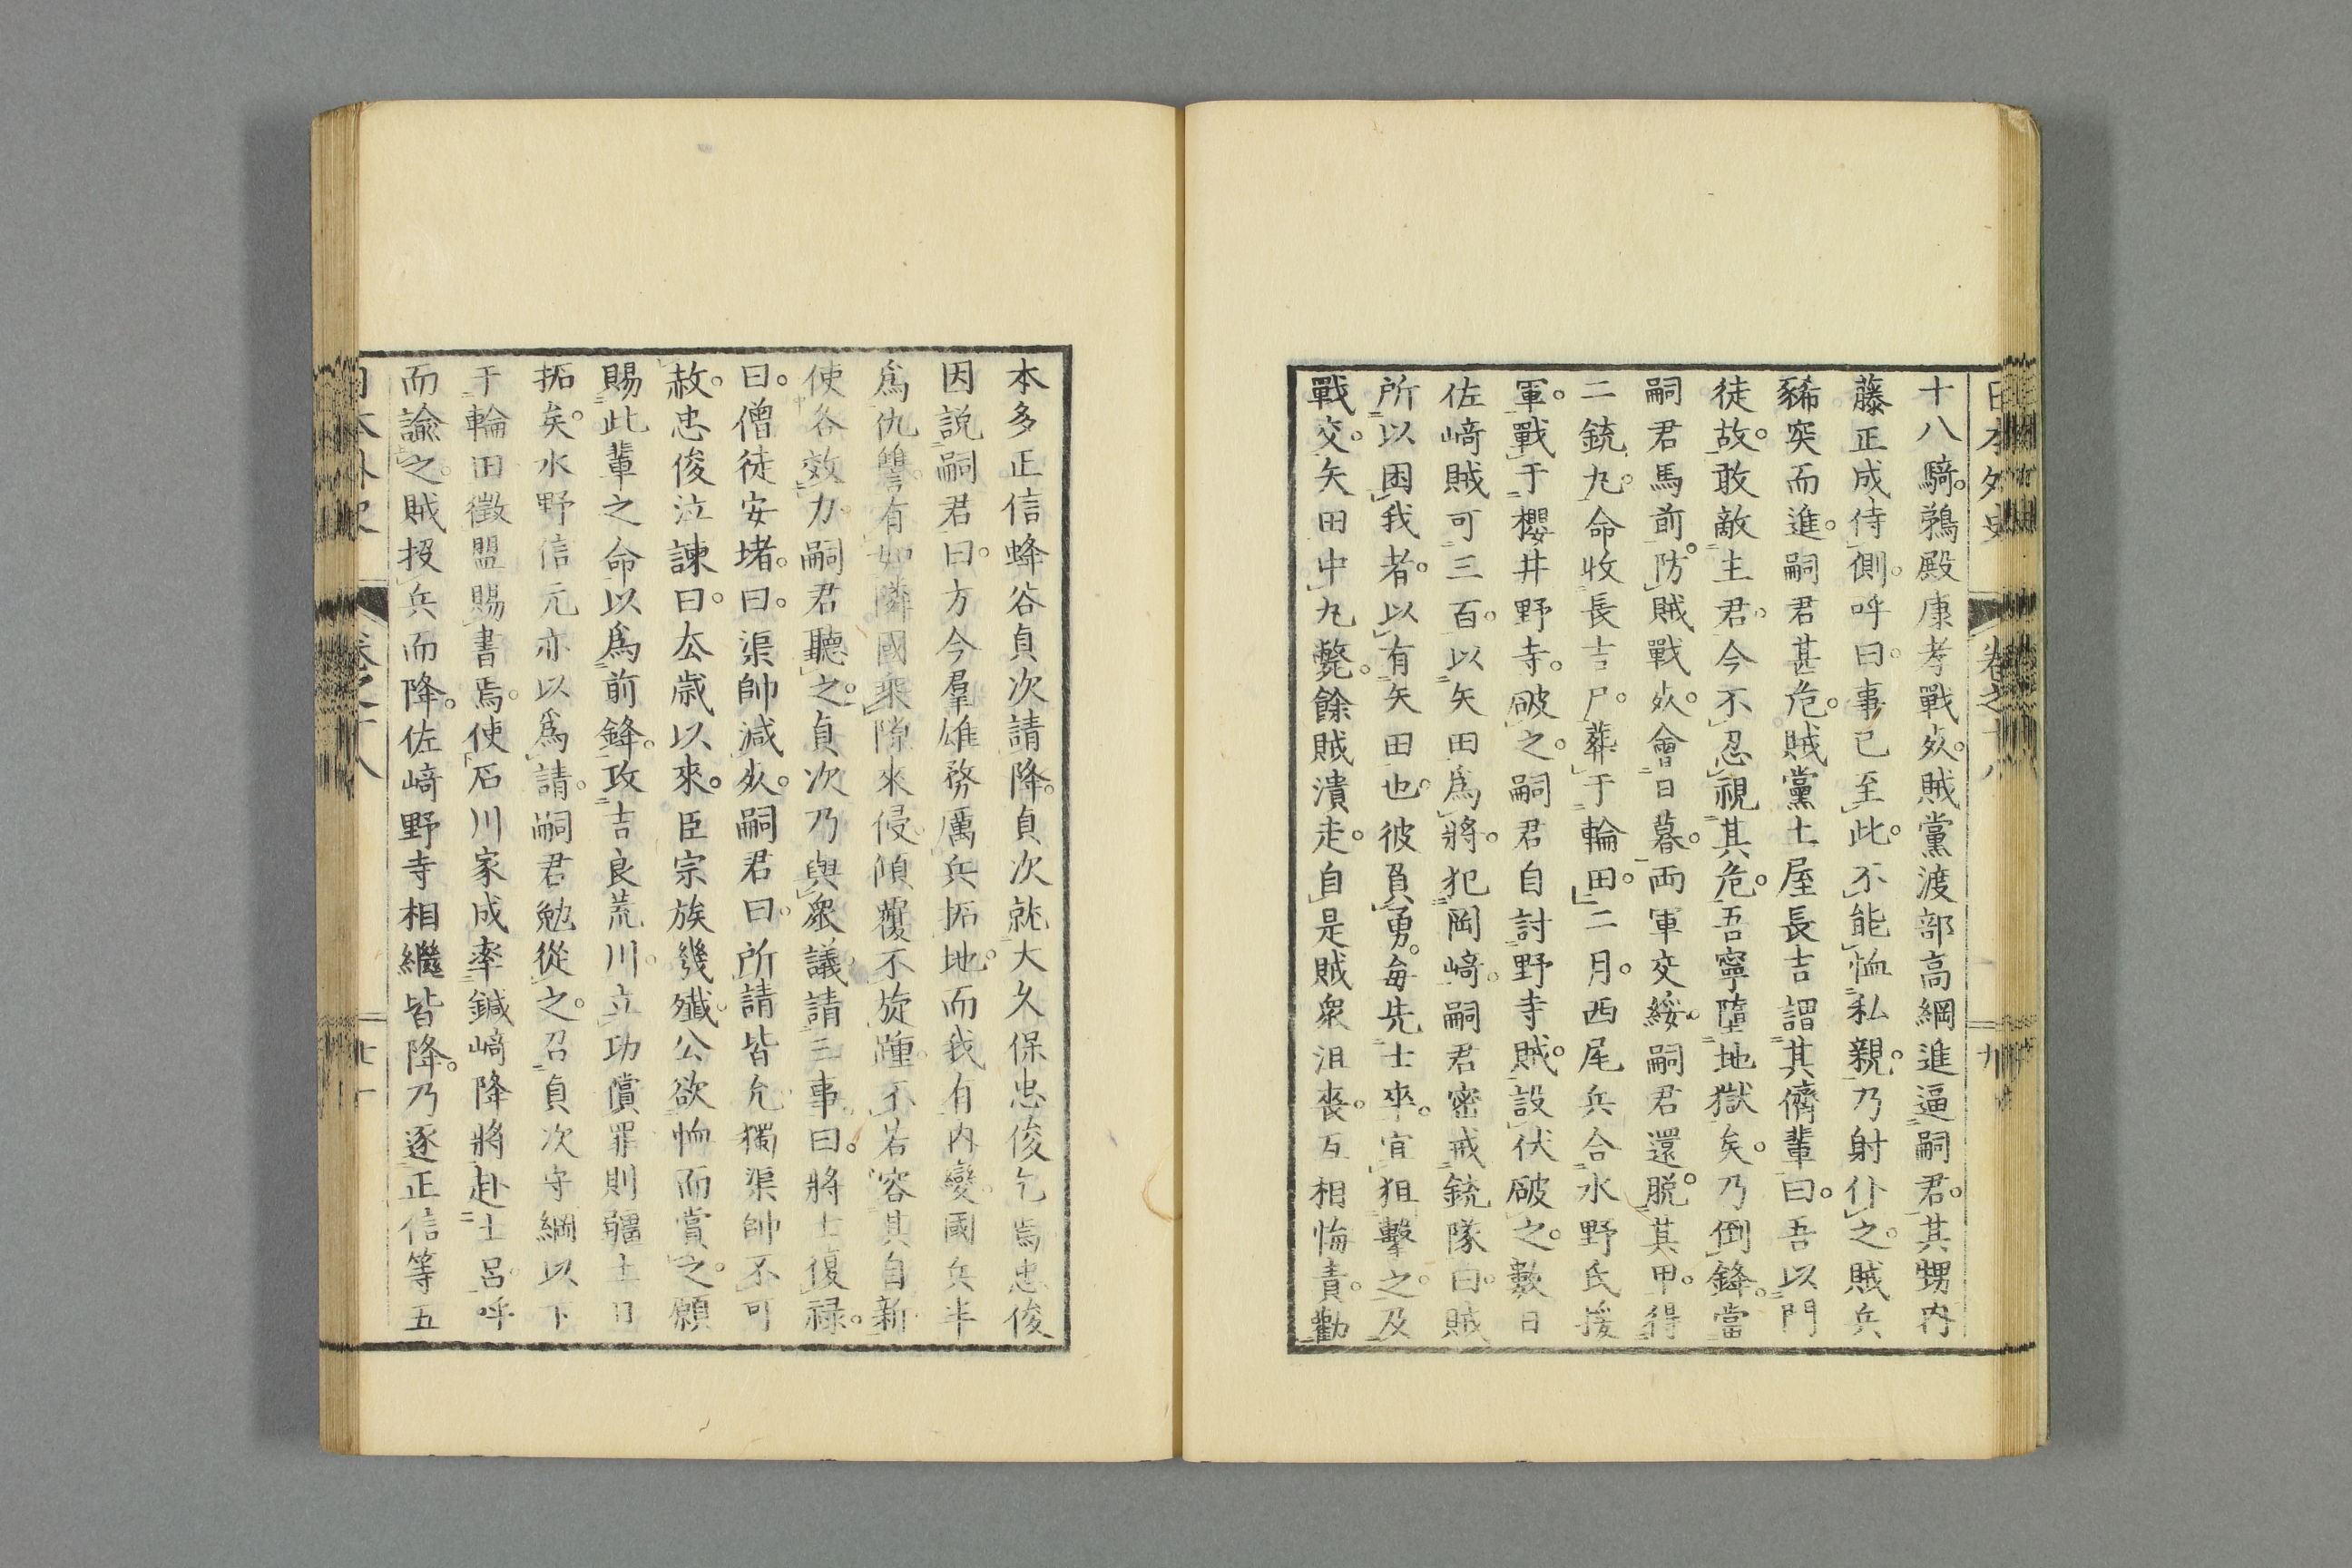 日本外史 卷之十八 十九
十八騎。鵜殿康孝戰死。賊黨渡部高綱進逼嗣君。其甥内
藤正成侍側。呼曰。事已至此。不能恤私親。乃射仆之。賊兵
豨突而進。嗣君甚危。賊黨土屋長吉謂其儕輩曰。吾以門
徒故。敢敵主君。今不忍視其危。吾寧墮地獄矣。乃倒鋒。當
嗣君馬前。防賊戰死。會日暮。兩軍交綏。嗣君還脱其甲。得
二銃丸。命收長吉尸。葬于輪田。二月。西尾兵合水野氏援
軍。戰于櫻井野寺。破之。嗣君自討野寺賊。設伏破之。數日
佐﨑賊可三百。以矢田爲將。犯岡﨑。嗣君密戒銃隊曰。賊
所以困我者。以有矢田也。彼負勇。每先士卒。宜狙擊之。及
戰交。矢田中丸斃。餘賊潰走。自是賊衆沮喪。互相悔責。勸
本多正信蜂谷貞次請降。貞次就大久保忠俊乞焉。忠俊
因説嗣君曰。方今羣雄務厲兵拓地。而我有内變。國兵半
爲仇讐。有如隣國乘隙來侵。傾覆不旋踵。不若容其自新
使各效力。嗣君聽之。貞次乃與衆議。請三事。曰。將士復禄。
曰。僧徒安堵。曰。渠帥減死。嗣君曰。所請皆允。獨渠帥不可
赦。忠俊泣諫曰。去歳以來。臣宗族幾殲。公欲恤而賞之。願
賜此輩之命。以爲前鋒。攻吉良荒川。立功償罪。則疆土日
拓矣。水野信元亦以爲請。嗣君勉從之。召貞次守綱以下
于輪田。徵盟賜書焉。使石川家成率鍼﨑降將赴土呂。呼
而諭之。賊投兵而降。佐﨑野寺相繼皆降。乃逐正信等五
日本外史 卷之十八